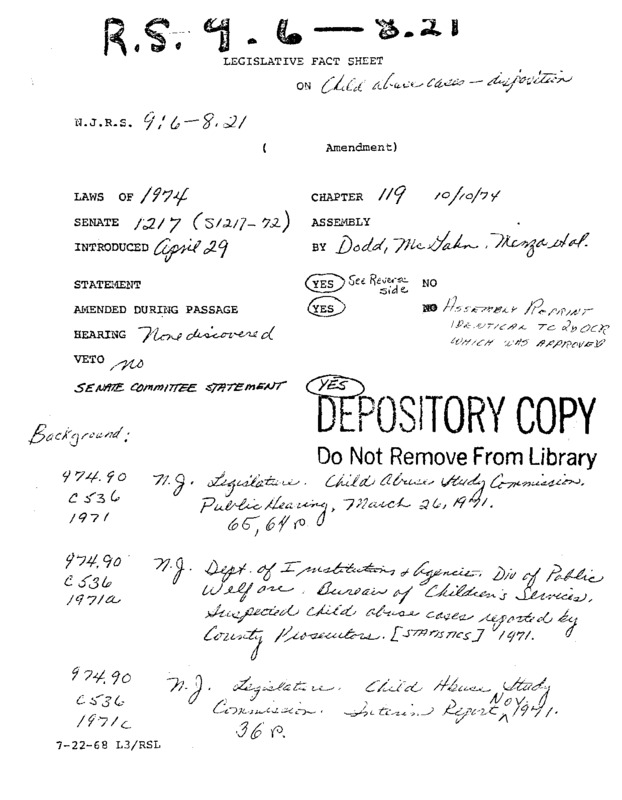 R.S. 9.6—8.21
LEGISLATIVE FACT SHEET
ON Child abuse cases – disposition
N.J.R.S. 9:6—8.21
( Amendment)
LAWS OF 1974 CHAPTER 119 10/10/74
SENATE 1217 (S1217-72) ASSEMBLY
INTRODUCED April 29 BY Dodd, McGahn, Menza et al.
STATEMENT YES See Reverse side NO
AMENDED DURING PASSAGE YES NO ASSEMBLY REPRINT
IDENTICAL TO 2D OCR
WHICH WAS APPROVED
HEARING None discovered
VETO no
SENATE COMMITTEE STATEMENT YES
DEPOSITORY COPY
Do Not Remove From Library
Background:
974.90 N.J. Legislature. Child Abuse Study Commission.
C536 Public Hearing, March 26, 1971.
1971 65, 64 p.
974.90 N.J. Dept. of Institutions & Agencies. Div of Public
C536 Welfare. Bureau of Children's Services.
1971a Suspected child abuse cases reported by
County Prosecutors. [STATISTICS] 1971.
974.90 N.J. Legislature. Child Abuse Study
C536 Commission. Interim Report, Nov 1971.
1971c 36 p.
7-22-68 L3/RSL